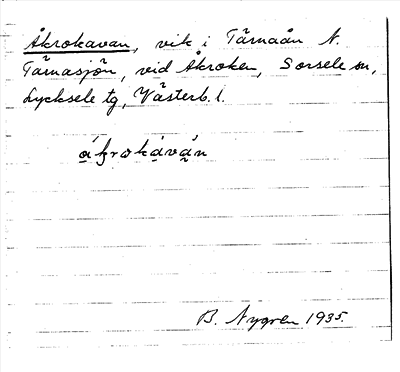 Åkrokavan, vik i Tärnaån N.
Tärnasjön, vid Åkroken, Sorsele sn,
Lycksele tg, Västerb. l.
B. Nygren 1935.